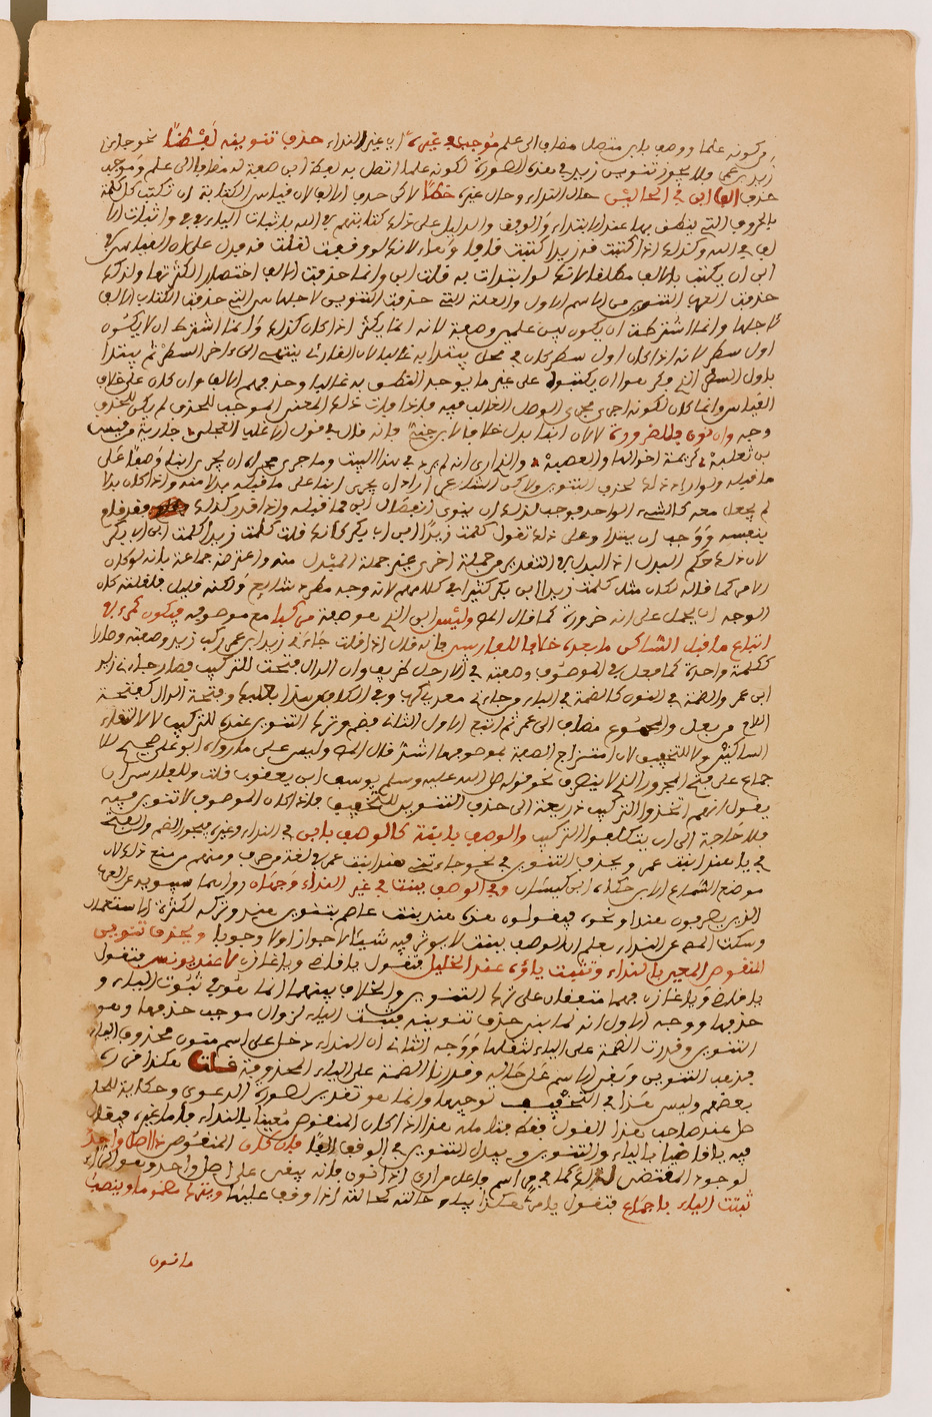 من كونه علما ووصف بابن متصل مضاف الى علم موجب في غيره اي غير النداء حذف تنوينه لفظا نحو جاءني
زيد بن عمرو ولا يجوز تنوين زيد في هذه الصورة لكونه علما اتصل به لفظة ابن صفة له مضافا الى علم وموجب
حذف الف ابن في الحالين حال النداء وحال غيره خطا لان حذف الالف لان قياس الكتابة ان تكتب كل كلمة
بالحروف التي ينطق بها عند الابتداء والوقف والدليل على ذلك كتابتهم
ابن ان يكتب بالالف مطلقا لانك لو ابتدات به قلت ابن وانما حذفت الالف اختصارا لكثرتها ولذلك
حذفت العرب التنوين من الاسم الاول والعلة التي حذفت التنوين لاجلها هي التي حذفت الكتاب الالف
لاجلها وانما اشترطت ان يكون بين علمين وصفة لانه انما يكثر اذا كان كذلك وانما اشترط ان لا يكون
اول سطر لانه اذا كان اول سطر كان في محل يبتدا به غالبا لان القارئ ينتهي الى اخر السطر ثم يبتدا
باول السطر الذي فكرهوا ان يكتبوه على غير ما يوجد النطق به غالبا وحذفهم الالف وان كان على خلاف
القياس وانما كان لكونه اجري مجرى الوصل الغالب فيه فاذا فات ذلك المعنى الموجب للحذف لم يكن للحذف
وجه وان نون فللضرورة لا لان ابنا بدل خلافا لابن جني فانه قال في قول الاغلب العجلي جارية من قيس
بن ثعلبة كريمة اخوالها والعصبة والذي ارى انه لم يرد في هذا البيت وما جرى مجراه ان يجري ابنا وصفا على
ما قبله ولو اراد ذلك لحذف التنوين ولكن الشاعر اراد ان يجري ابنا على ما قبله بدلا منه واذا كان بدلا
لم يجعل معه كالشيء الواحد فوجب لذلك ان ينوى انفصال ابن مما قبله واذا قدر كذلك فقد قام
بنفسه ووجب ان يبتدا وعلى ذلك تقول كلمت زيدا ابن ابي بكر كانك قلت كلمت زيدا كلمت ابن ابي بكر
لان ذلك حكم البدل اذ البدل في التقدير من جملة اخرى غير جملة المبدل منه واعترضه جماعة بانه لو كان
الامر كما قاله لكان مثل كلمت زيدا ابن بكر كثيرا في كلامهم لانه وجه مطرد شايع ولكنه قليل فلقلته كان
الوجه ان يحمل على انه ضرورة كما قال المص وليس ابن الذي هو صفة مركبا مع موصوفه فيكون كمرء في
اتباع ما قبل الساكن ما بعده خلافا للفارسي فانه قال اذا قلت جاءني زيد بن عمرو ركب زيد وصفته وصارا
ككلمة واحدة كما فعل في الموصوف وصفته في لا رجل ظريف وان الدال فتحت للتركيب فصار جاءني زيد
ابن عمر والضمة في النون كالضمة في الباء من جاءني معدي كرب
الساكنين ولا للتخفيف لان امتزاج الصفة بموصوفها اشد قال المص وليس على ما رواه ابو علي صحيح للا
جماع على فتح المجرور الذي لا ينصرف نحو قوله صلى الله عليه وسلم يوسف ابن يعقوب قلت وللفارسي ان
يقول انهم اتخذوا التركيب ذريعة الى حذف التنوين للتخفيف فاذا كان الموصوف لا تنوين فيه
فلا حاجة الى ان يتكلفوا التركيب والوصف بابنة كالوصف بابن في النداء وغيره فيجوز الضم والفتح
في يا هند ابنة عمر ويحذف التنوين في نحو جاءتني هند ابنة عمر في لغة من صرف ومنهم من منع ذلك لان
موضع السماع الابن حكاه ابن كيسان وفي الوصف ببنت في غير النداء وجهان رواهما سيبويه عن العرب
الذين يصرفون هندا ونحوه فيقولون هذه هند بنت عاصم بتنوين هند وتركه لكثرة الاستعمال
وسكت المص عن النداء فعلم ان الوصف ببنت لا يوثر فيه شيئا لا جوازا ولا وجوبا ويحذف تنوين
المنقوص المعين بالنداء وتثبت ياؤه عند الخليل فتقول يا قاضي ويا غازي لا عند يونس فتقول
يا قاض ويا غاز فهما متفقان على ترك التنوين والخلاف بينهما انما هو في ثبوت الياء و
حذفها ووجه الاول انه لما بنى حذف تنوينه فتثبت الياء لزوال موجب حذفها وهو
التنوين وقدرت الضمة على الياء لثقلها ووجه الثاني ان النداء دخل على اسم منون محذوف الياء
فذهب التنوين وبقي الاسم على حاله وقدرنا الضمة على الياء المحذوفة قلت هكذا قرره
بعضهم وليس هذا في التحقيق توجيها وانما هو تقدير لصورة الدعوى وحكاية للحا
صل عند صاحب هذا القول فقط فتامله هذا اذا كان المنقوص معينا بالنداء فاما غيره فيقال
فيه يا قاضيا بالياء والتنوين ويبدل التنوين في الوقف الفا فان كان المنقوص ذا اصل واحد
لوجود المقتضي لذلك كما في مر اسم فاعل من ارى اذا نون فانه يبقى على اصل واحد وهو الراء
ثبتت الياء باجماع فتقول يا مري هكذا بياء
ما نون